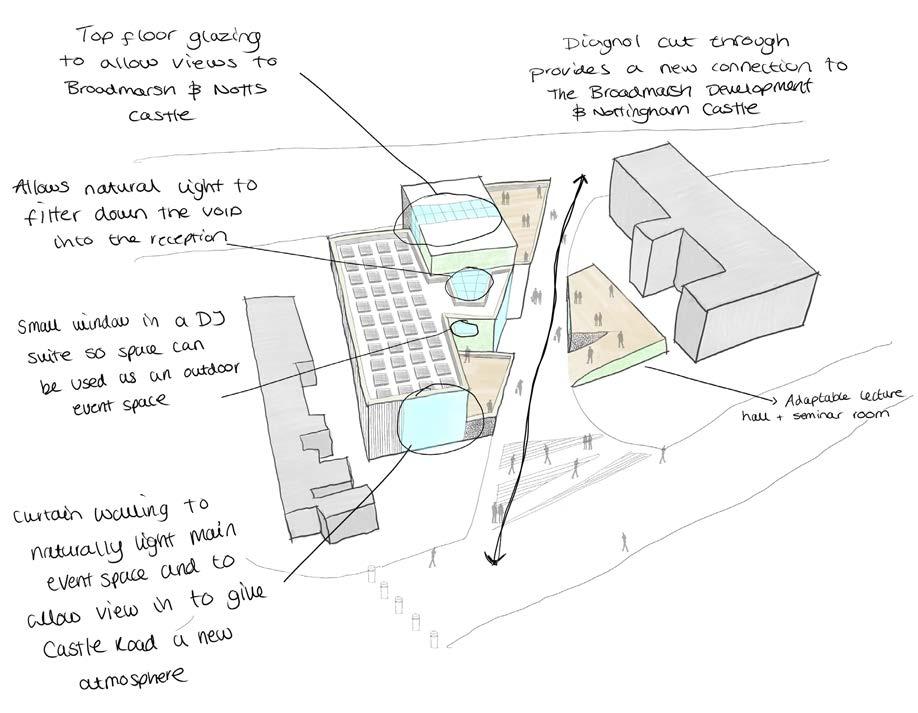 Top floor glazing
to allow views to
Broadmarsh & Notts
Castle
Diagnol cut through
provides a new connection to
The Broadmarsh Development
& Nottingham Castle
Allows natural light to
filter down the void
into the reception
Small window in a DJ
suite so space can
be used as an outdoor
event space
Adaptable lecture
hall + seminar room
Curtain walling to
naturally light main
event space and to
allow view in to give
Castle Road a new
atmosphere